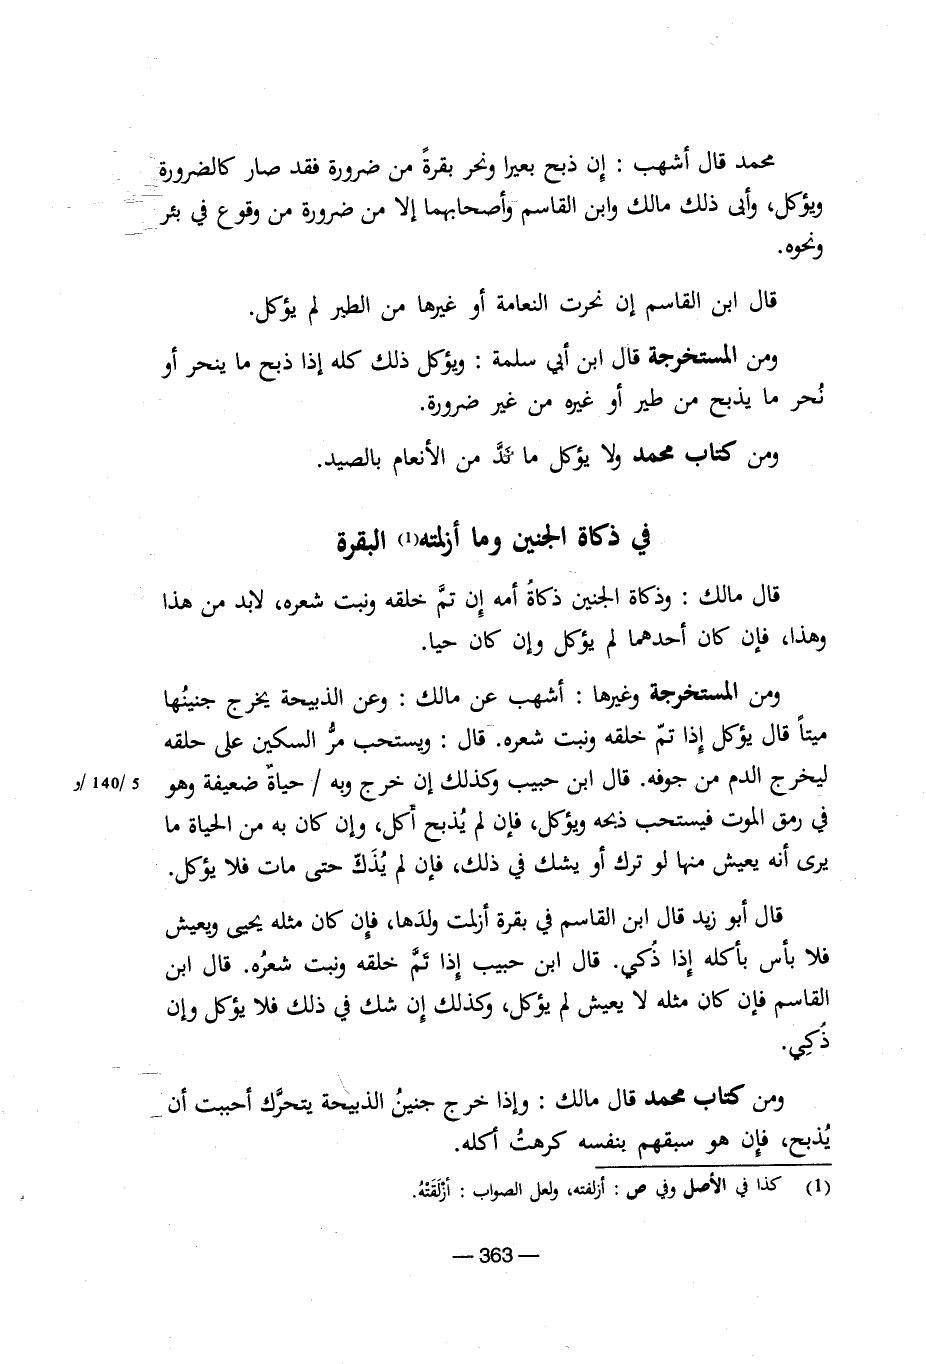 محمد قال أشهب : إن ذبح بعيرا ونحر بقرةً من ضرورة فقد صار كالضرورة
ويؤكل، وأبى ذلك مالك وابن القاسم وأصحابهما إلا من ضرورة من وقوع في بئر
ونحوه.
قال ابن القاسم إن نحرت النعامة أو غيرها من الطير لم يؤكل.
ومن المستخرجة قال ابن أبي سلمة : ويؤكل ذلك كله إذا ذبح ما ينحر أو
نُحر ما يذبح من طير أو غيره من غير ضرورة.
ومن كتاب محمد ولا يؤكل ما نَدَّ من الأنعام بالصيد.
في ذكاة الجنين وما أزلمته(1) البقرة
قال مالك : وذكاة الجنين ذكاةُ أمه إن تمَّ خلقه ونبت شعره، لابد من هذا
وهذا، فإن كان أحدهما لم يؤكل وإن كان حيا.
ومن المستخرجة وغيرها : أشهب عن مالك : وعن الذبيحة يخرج جنينُها
ميتاً قال يؤكل إذا تمّ خلقه ونبت شعره. قال : ويستحب مرُّ السكين على حلقه
ليخرج الدم من جوفه. قال ابن حبيب وكذلك إن خرج وبه / حياةٌ ضعيفة وهو
5 /140/و
في رمق الموت فيستحب ذبحه ويؤكل، فإن لم يُذبح أكل، وإن كان به من الحياة ما
يرى أنه يعيش منها لو ترك أو يشك في ذلك، فإن لم يُذَكّ حتى مات فلا يؤكل.
قال أبو زيد قال ابن القاسم في بقرة أزلمت ولدَها، فإن كان مثله يحيى ويعيش
فلا بأس بأكله إذا ذُكي. قال ابن حبيب إذا تَمَّ خلقه ونبت شعرُه. قال ابن
القاسم فإن كان مثله لا يعيش لم يؤكل، وكذلك إن شك في ذلك فلا يؤكل وإن
ذُكِي.
ومن كتاب محمد قال مالك : وإذا خرج جنينُ الذبيحة يتحرَّك أحببت أن
يُذبح، فإن هو سبقهم بنفسه كرهتُ أكله.
(1) كذا في الأصل وفي ص : أزلفته، ولعل الصواب : أزْلَقَتْهُ.
— 363 —